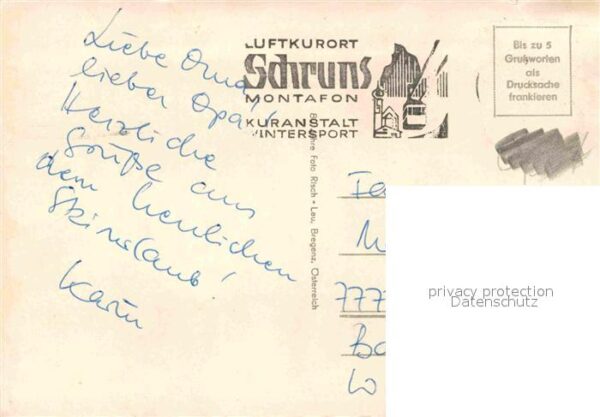 Liebe Oma,
lieber Opa!
Herzliche
Grüße aus
dem herrlichen
Skiurlaub!
Karin
LUFTKURORT
Schruns
MONTAFON
KURANSTALT
WINTERSPORT
Bis zu 5
Grußworten
als
Drucksache
frankieren
Foto Risch • Lau, Bregenz, Österreich
777
privacy protection
Datenschutz